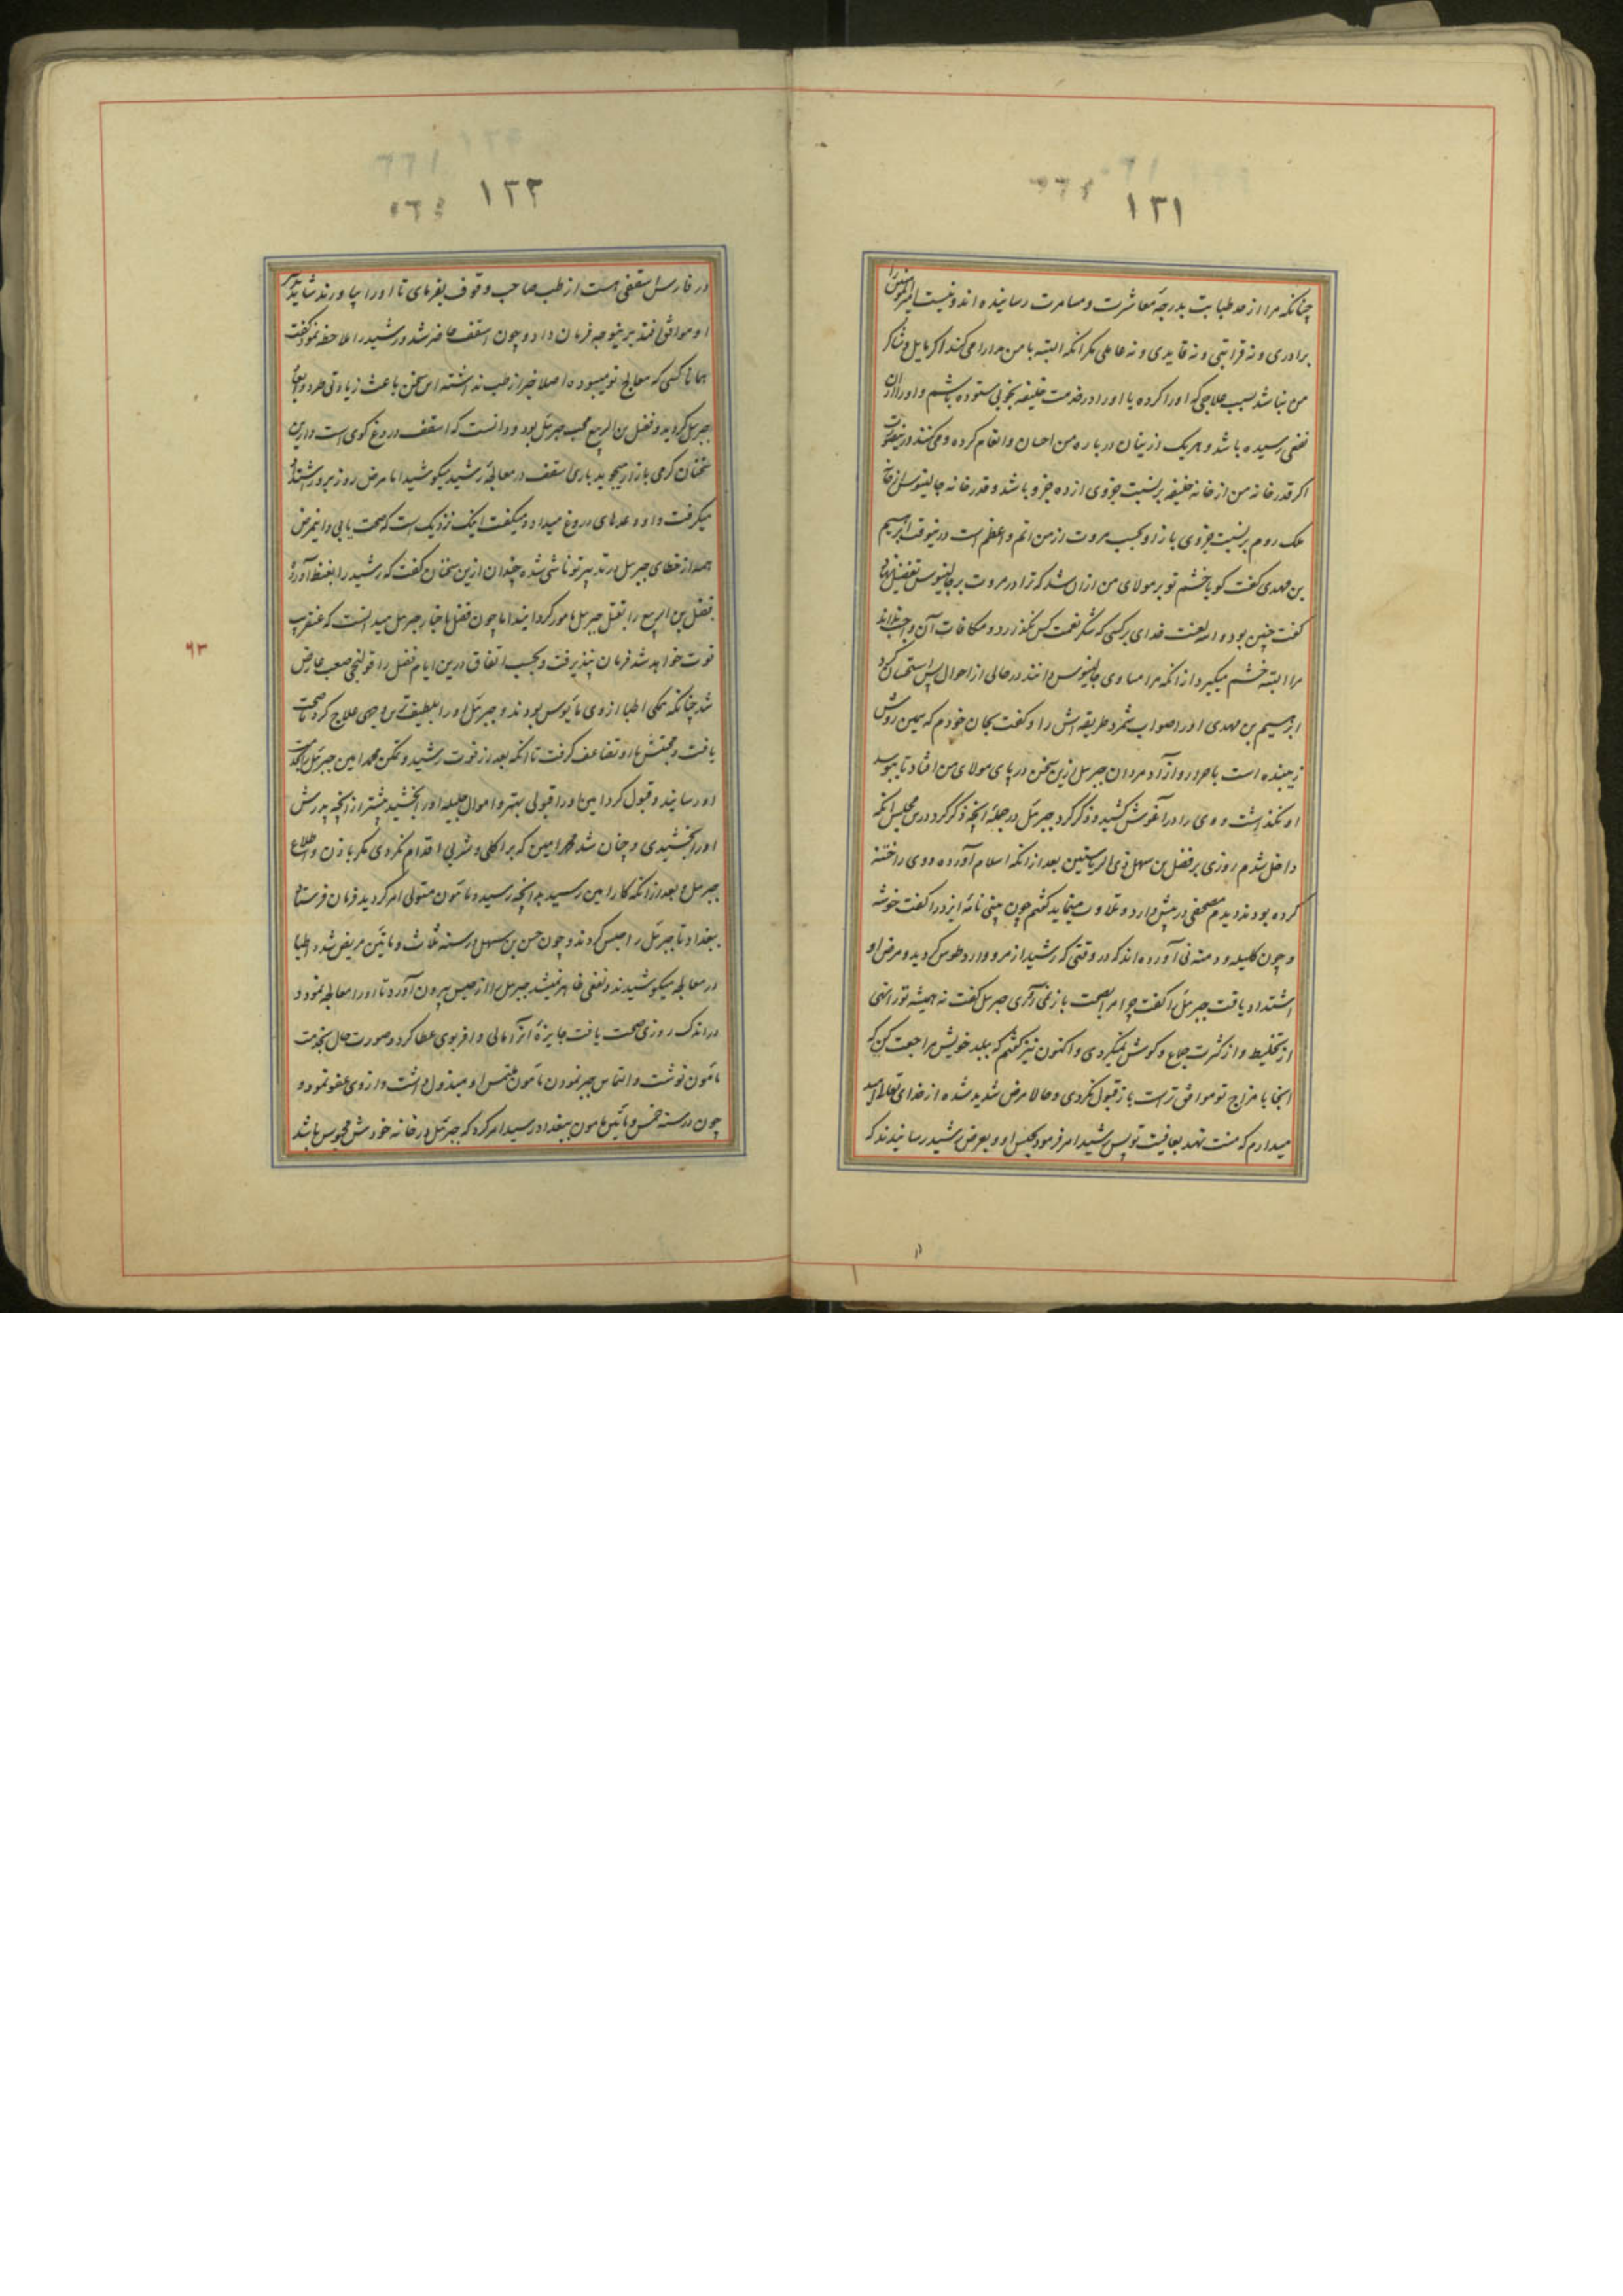 ۱۲۱
چنانکه مرا از حد طبابت بدرجهٔ معاشرت و مسامرت رسانیده‌اند و نیست امیرالمؤمنین را
برادری و نه قرابتی و نه قایدی و نه عاملی مگر انکه البته با من مدارا می‌کند اکر مایل و شاکر
من نباشد بسبب علاجی که او را کرده یا او را در خدمت خلیفه بخوبی ستوده باشم و او را ازان
نفعی رسیده باشد و هریک ازینان در باره من احسان و انعام کرده و می‌کنند درینصورت
اکر قدر خانه من از خانه خلیفه برنسبت جزوی از ده جزو باشد و قدر خانه جالینوس از خانه
ملک روم برنسبت جزوی باز او بحسب مروت از من اتم و اعظم است درینوقت ابرهیم
بن مهدی کفت کویا خشم تو بر مولای من ازان شد که ترا در مروت بر جالینوس تفضیل نهاد
کفت چنین بود والله لعنت خدای برکسی که شکر نعمت کس نکذارد و مکافات آن واجب نداند
مرا البته خشم میکیرد از انکه مرا مساوی جالینوس دانند در حالی از احوال پس استحسان کرد
ابرهیم بن مهدی او را صواب شمرد طریقه‌اش را و کفت بجان خودم که همین روش
زیبنده است باحرار و ازآدمردان جبرئل ازین سخن در پای مولای من افتاد تا ببوسد
او نکذاشت و وی را در آغوش کشید و ذکر کرد جبرئل در جملهٔ انچه ذکر کرد درین مجلس انکه
داخل شدم روزی بر فضل بن سهل ذی الریاستین بعد از انکه اسلام آورده و وی را ختنه
کرده بودند دیدم مصحفی در پیش دارد و تلاوت مینماید کفتم چون بینی نامهٔ ایزد را کفت خوشه
و چون کلیله و دمنه نی آورده‌اند که در وقتی که رشید از مرو وارد طوس کردید و مرض او
اشتداد یافت جبرئل را کفت چرا مرا بصحت باز نمی‌آری جبرئل کفت نه همیشه تو را نهی
از تخلیط و از کثرت جماع و کوش نمیکردی و اکنون نیز کفتم که ببلد خویش مراجعت کن که
انجا با مزاج تو موافق تر است باز قبول نکردی و حالا مرض شدید شده از خدای تعالی امید
میدارم که منت نهد بعافیت تو پس رشید امر فرمود بحبس او و بعرض رشید رسانیدند که
۱۲۲
در فارس اسقفی هست از طب صاحب وقوف بفرمای تا او را بیاورند شاید تدبیر
او موافق افتد برینوجه فرمان داد و چون اسقف حاضر شد و رشید را ملاحظه نمود کفت
همانا کسی که معالج تو میبوده اصلا خبر از طب نداشته این سخن باعث زیادتی طرد و ابعاد
جبرئل کردید و فضل بن الربیع محب جبرئل بود و دانست که اسقف دروغ کوی است و ازین
سخنان کرمی بازار میجوید باری اسقف در معالجهٔ رشید میکوشید اما مرض روز بروز اشتداد
میکرفت و او وعدهای دروغ میداد و میکفت اینک نزدیک است که صحت یابی و اینمرض
همه از خطای جبرئل در تدبیر تو ناشی شده چندان ازین سخنان کفت که رشید را بغیظ آورد
فضل بن الربیع را بقتل جبرئل مامور کردانید اما چون فضل باخبار جبرئل میدانست که عنقریب
فوت خواهد شد فرمان نپذیرفت و بحسب اتفاق درین ایام فضل را قولنجی صعب عارض
شد چنانکه همکی اطبا از وی مأیوس بودند و جبرئل او را بلطیف‌ترین وجهی علاج کرد تا صحت
یافت و محبتش با او تضاعف کرفت تا انکه بعد از فوت رشید و تمکن محمد امین جبرئل را بخدمت
او رسانید و قبول کرد امین او را قبولی بهتر و اموال جلیله او را بخشید بیشتر از انچه پدرش
او را بخشیدی و چنان شد محمد امین که بر اکلی و شربی اقدام نکردی مکر باذن و اطلاع
جبرئل و بعد از انکه کار امین رسید بدانچه رسید و مامون متولی امر کردید فرمان فرستاد
ببغداد تا جبرئل را حبس کردند و چون حسن بن سهل در سنه ثلاث و مائتین مریض شد و اطبا
در معالجه میکوشیدند و نفعی ظاهر نمیشد جبرئل را از حبس بیرون آورد تا او را معالجه نمود و
در اندک روزی صحت یافت جایزهٔ انرا مالی وافر بوی عطا کرد و صورت حال بخدمت
مامون نوشت و التماس جبر نمودن مامون ملتمس او مبذول داشت و از وی عفو نمود و
چون در سنه خمس و مائتین مامون ببغداد رسید امر کرد که جبرئل در خانه خودش محبوس باشد
۶۳